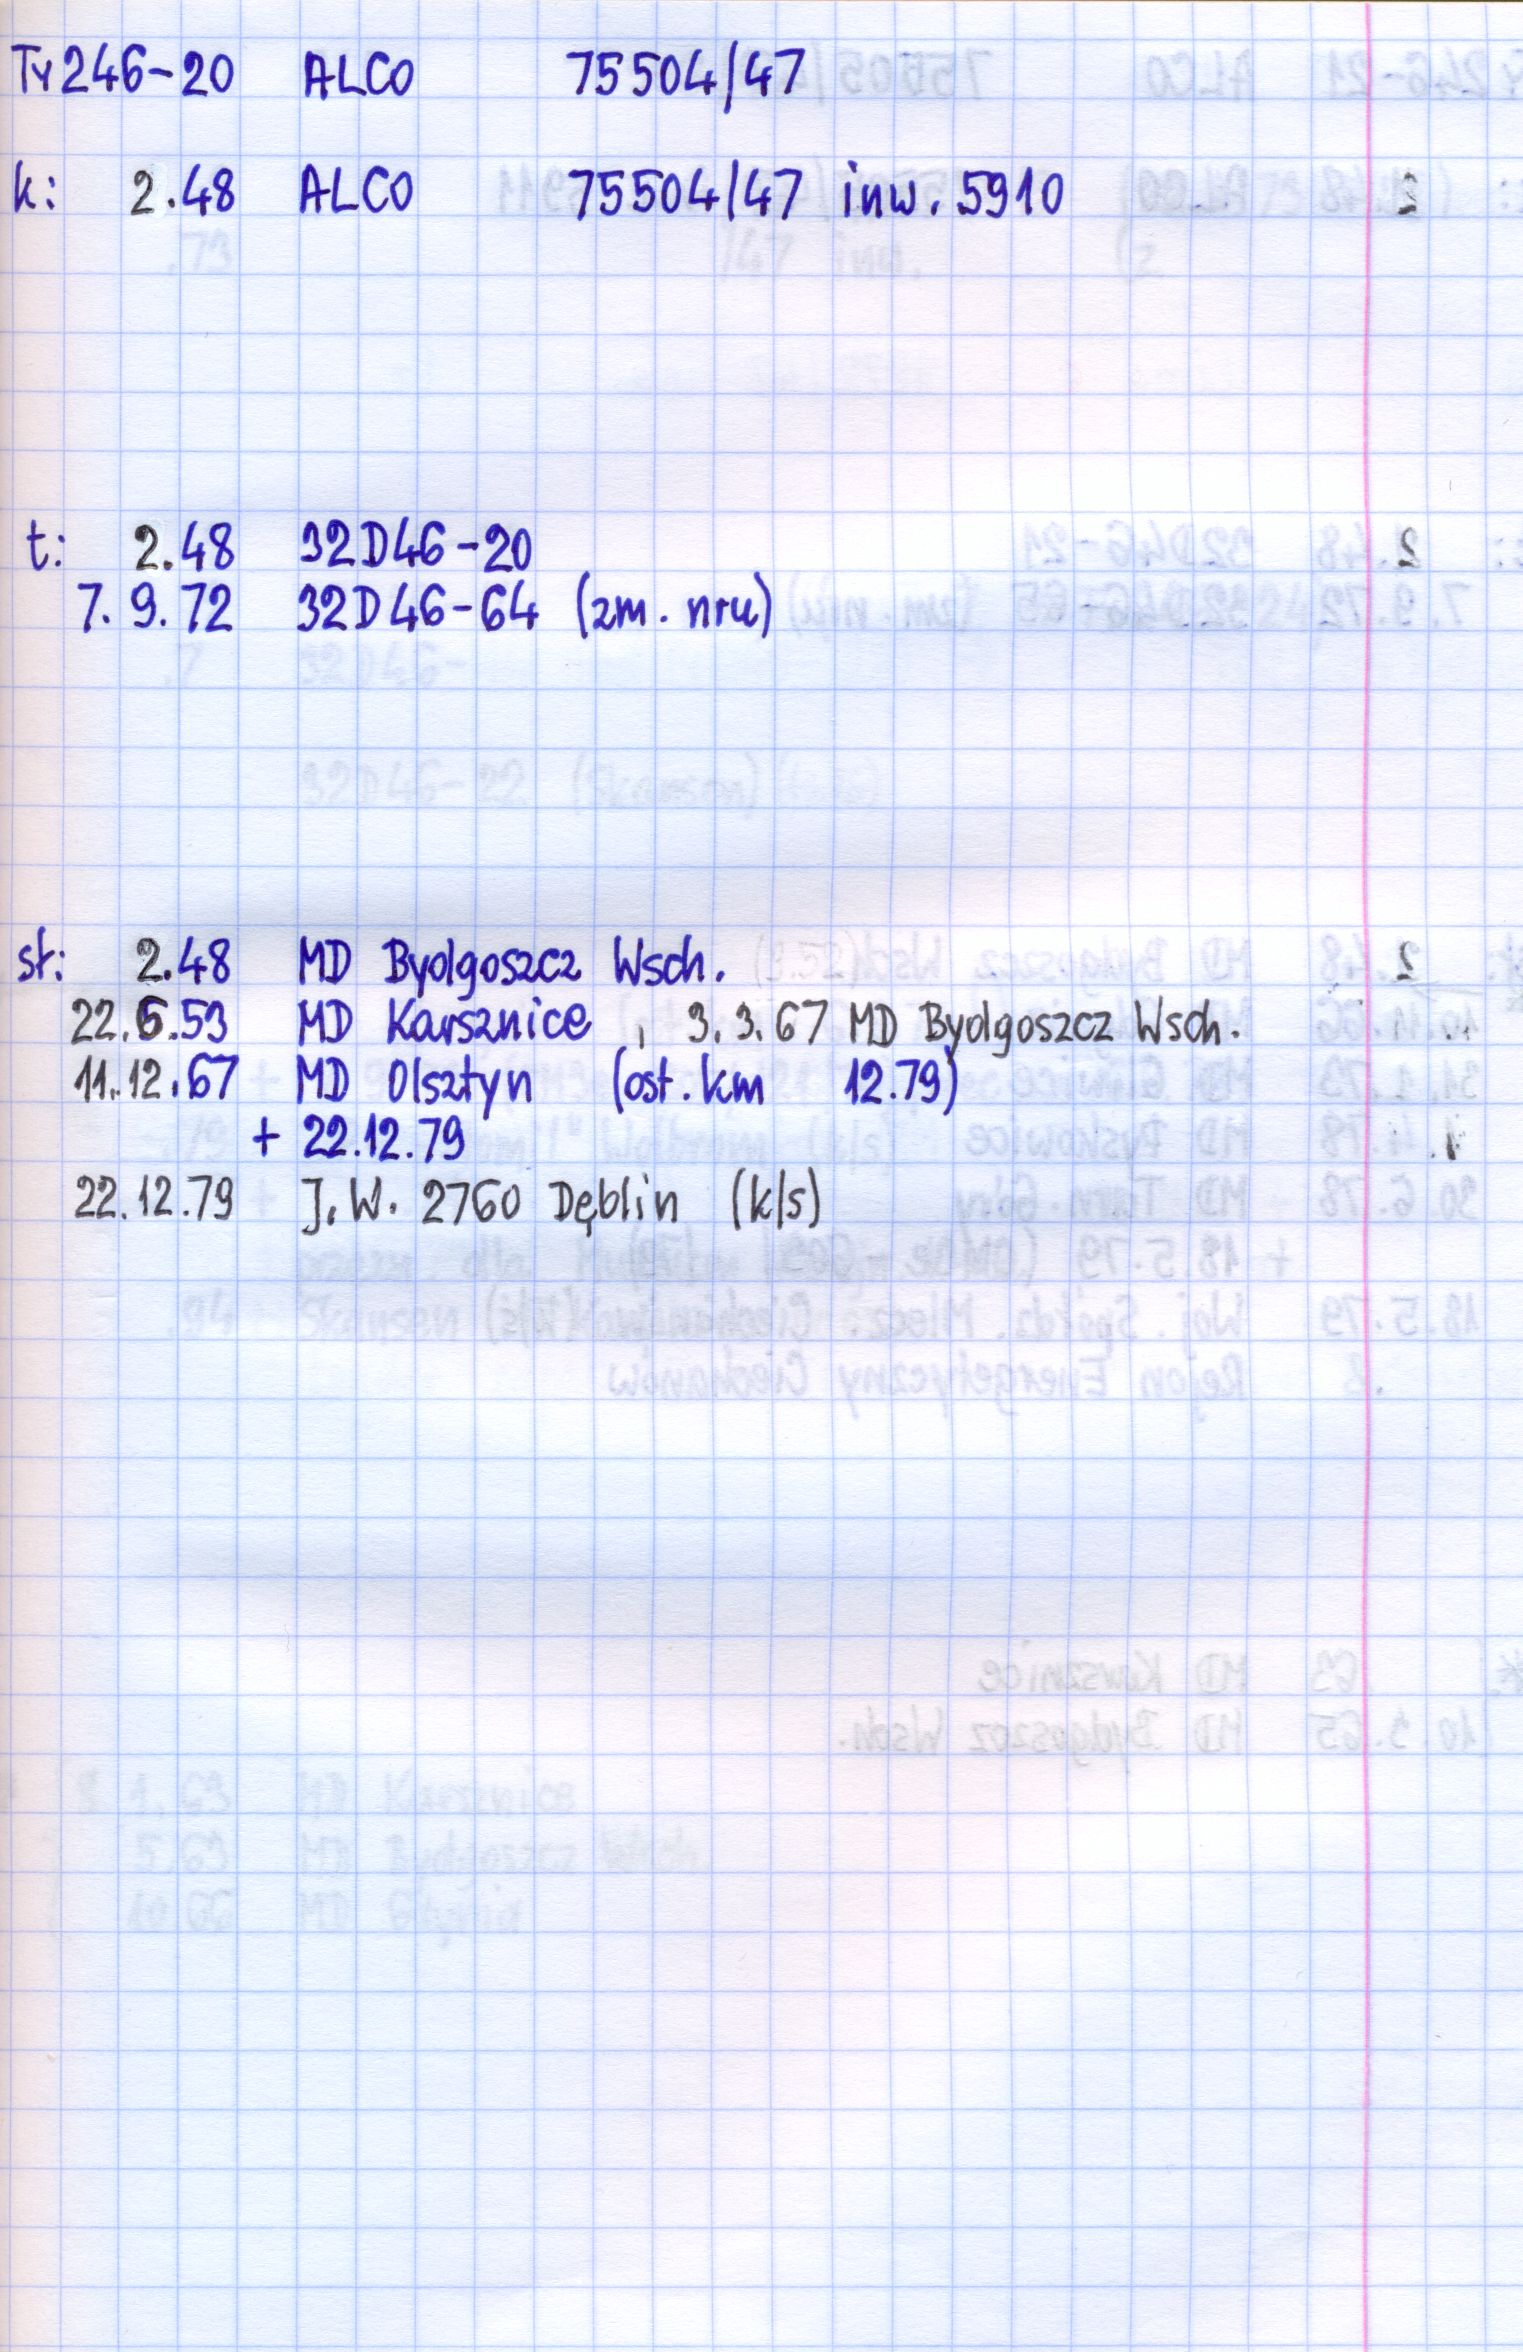 Ty246-20 ALCO 75504/47
k: 2.48 ALCO 75504/47 inw. 5910
t: 2.48 32D46-20
7.9.72 32D46-64 (zm. nru)
st: 2.48 MD Bydgoszcz Wsch.
22.6.53 MD Karsznice, 3.3.67 MD Bydgoszcz Wsch.
11.12.67 MD Olsztyn (ost. km 12.79)
+ 22.12.79
22.12.79 J.W. 2760 Dęblin (k/s)